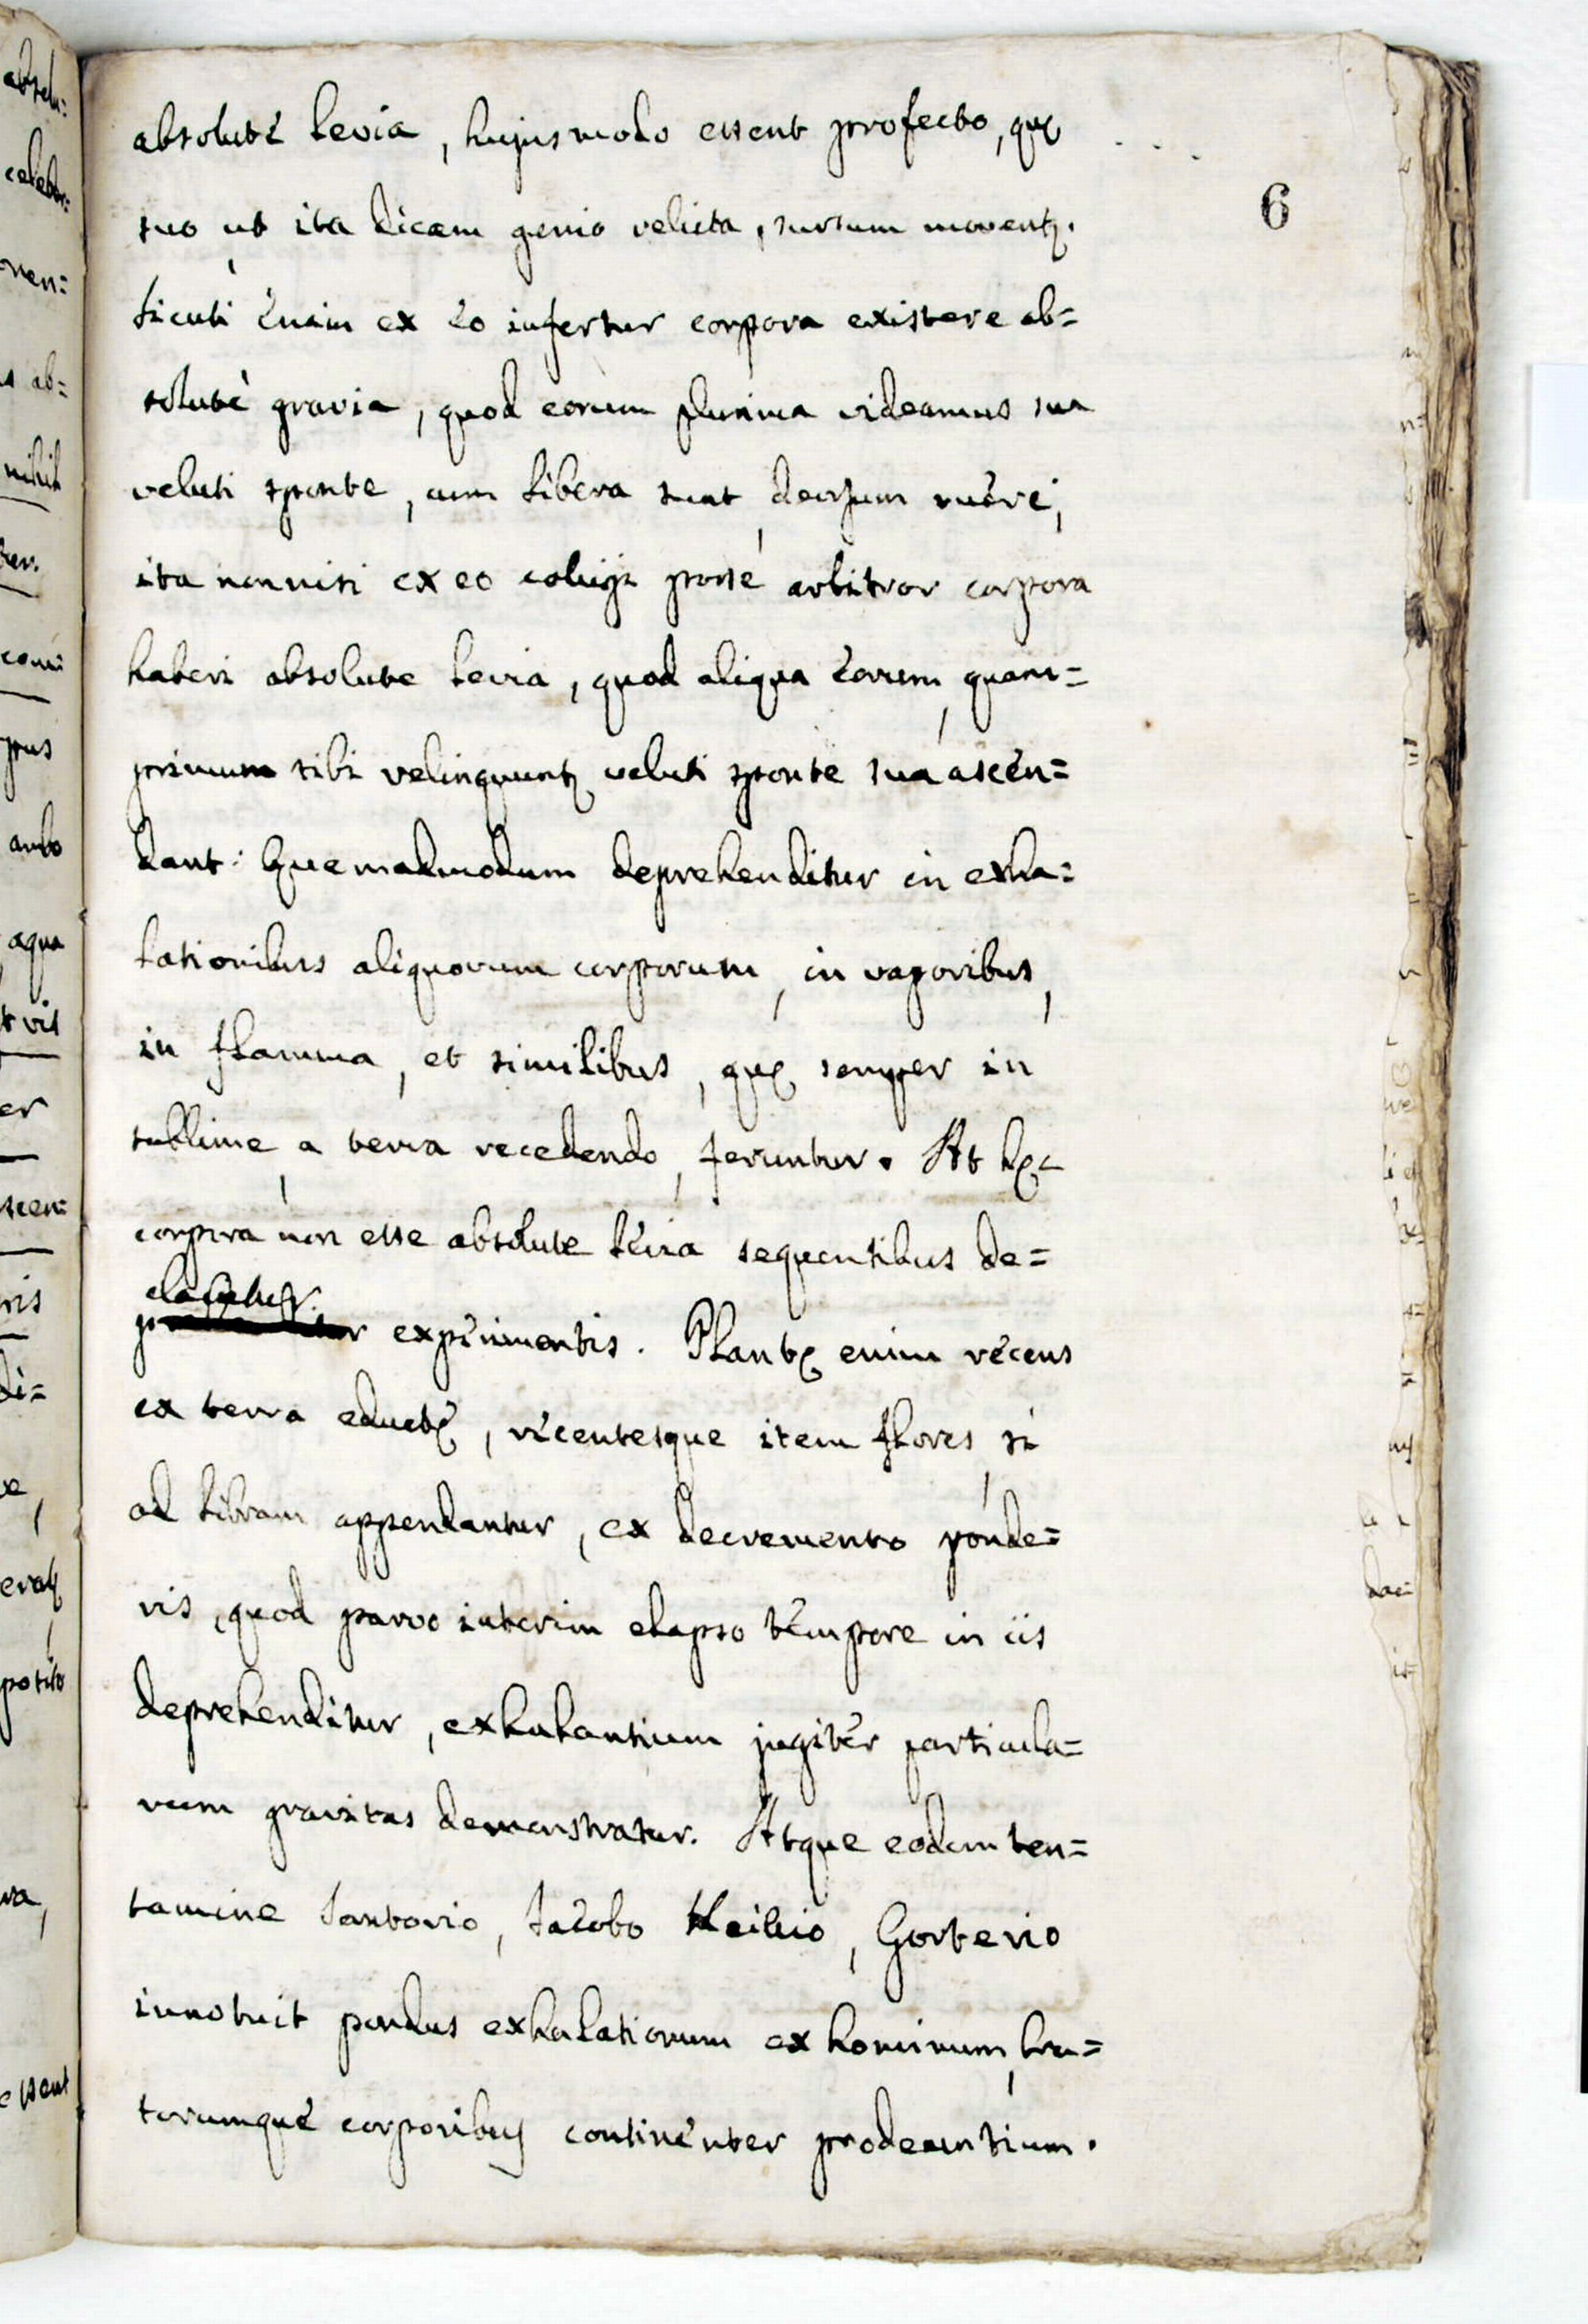 absoluté levia, hujusmodo essent profecto, quę
6
suo, ut ita dicam genio relicta, sursum moventr.
Sicuti énim ex éo infertur corpora existere ab=
solutè gravia, quod eorum plurima videamus sua
veluti sponte, cum libera sunt, deorsum ruére,
ita nonnisi ex eo colligi posse arbitror corpora
haberi absolute levia, quod aliqua éorum, quam=
primum sibi relinquuntr veluti sponte sua ascén=
dant: Quemadmodum deprehenditur in exha=
lationibus aliquorum corporum, in vaporibus,
in flamma, et similibus, quę semper in
sublime, a terra recedendo, feruntur. At hęc
corpora non esse absolute lévia sequentibus de=
experimentis. Plantę enim récens
ex terra eductę, récentesque item flores, si
ad libram appendantur, ex decremento ponde=
ris, quod parvo interim elapso témpore in iis
deprehenditur, exhalantium jugitér particula=
rum gravitas demonstratur. Atque eodem ten=
tamine Santorio, Jacobo Keilio, Gorterio
innotuit pondus exhalationum ex hominum, bru=
torumqué corporibus continénter prodeuntium.